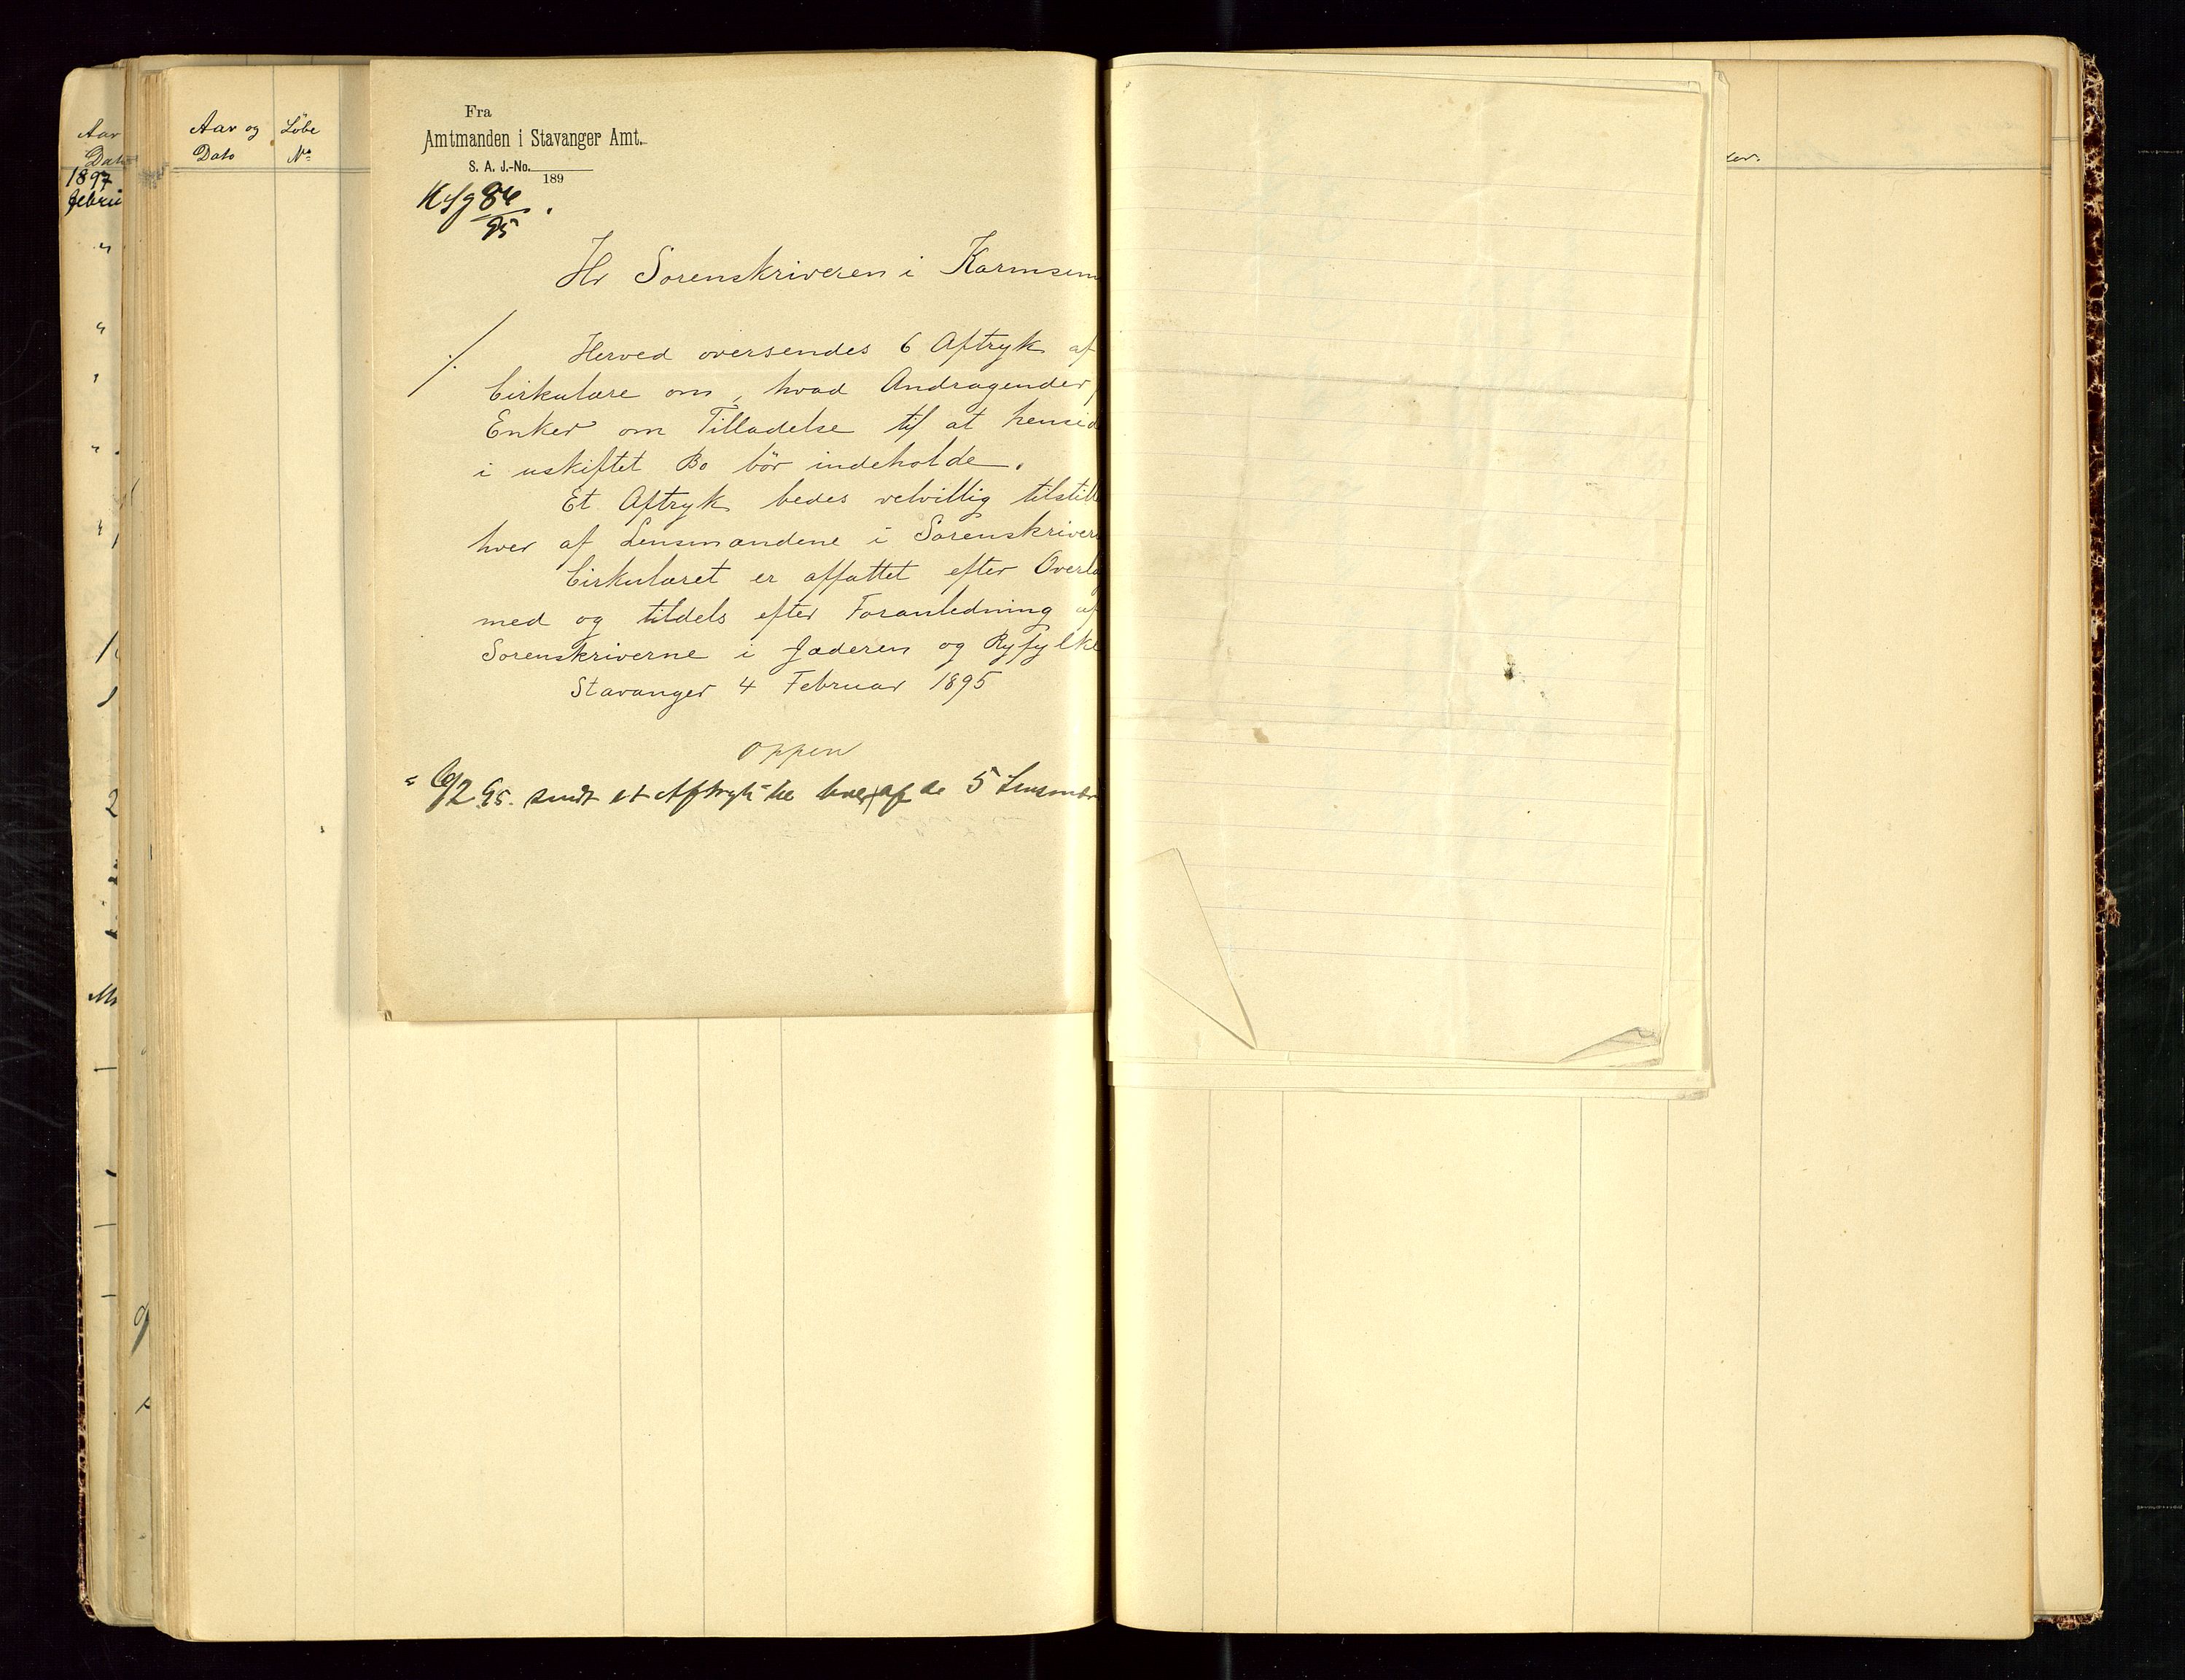 Aar
Dato
1897
Februa
Aar og
Dato
Løbe
No
Fra
Amtmanden i Stavanger Amt.
S. A. J.-No.
189
Ksg 86
95
Hr Sorenskriveren i Karmsun
Herved oversendes 6 Aftryk af
Cirkulære om, hvad Andragender
Enker om Tilladelse til at hensid
i uskiftet Bo bör indeholde.
Et Aftryk bedes velvillig tilstill
hver af Lensmændene i Sorenskriver
Cirkulæret er affattet efter Overlæ
med og tildels efter Foranledning af
Sorenskriverne i Jæderen og Ryfylke
Stavanger 4 Februar 1895
Oppen
6/2 95. sendt et Aftryk til hver af de 5 Lensmæn